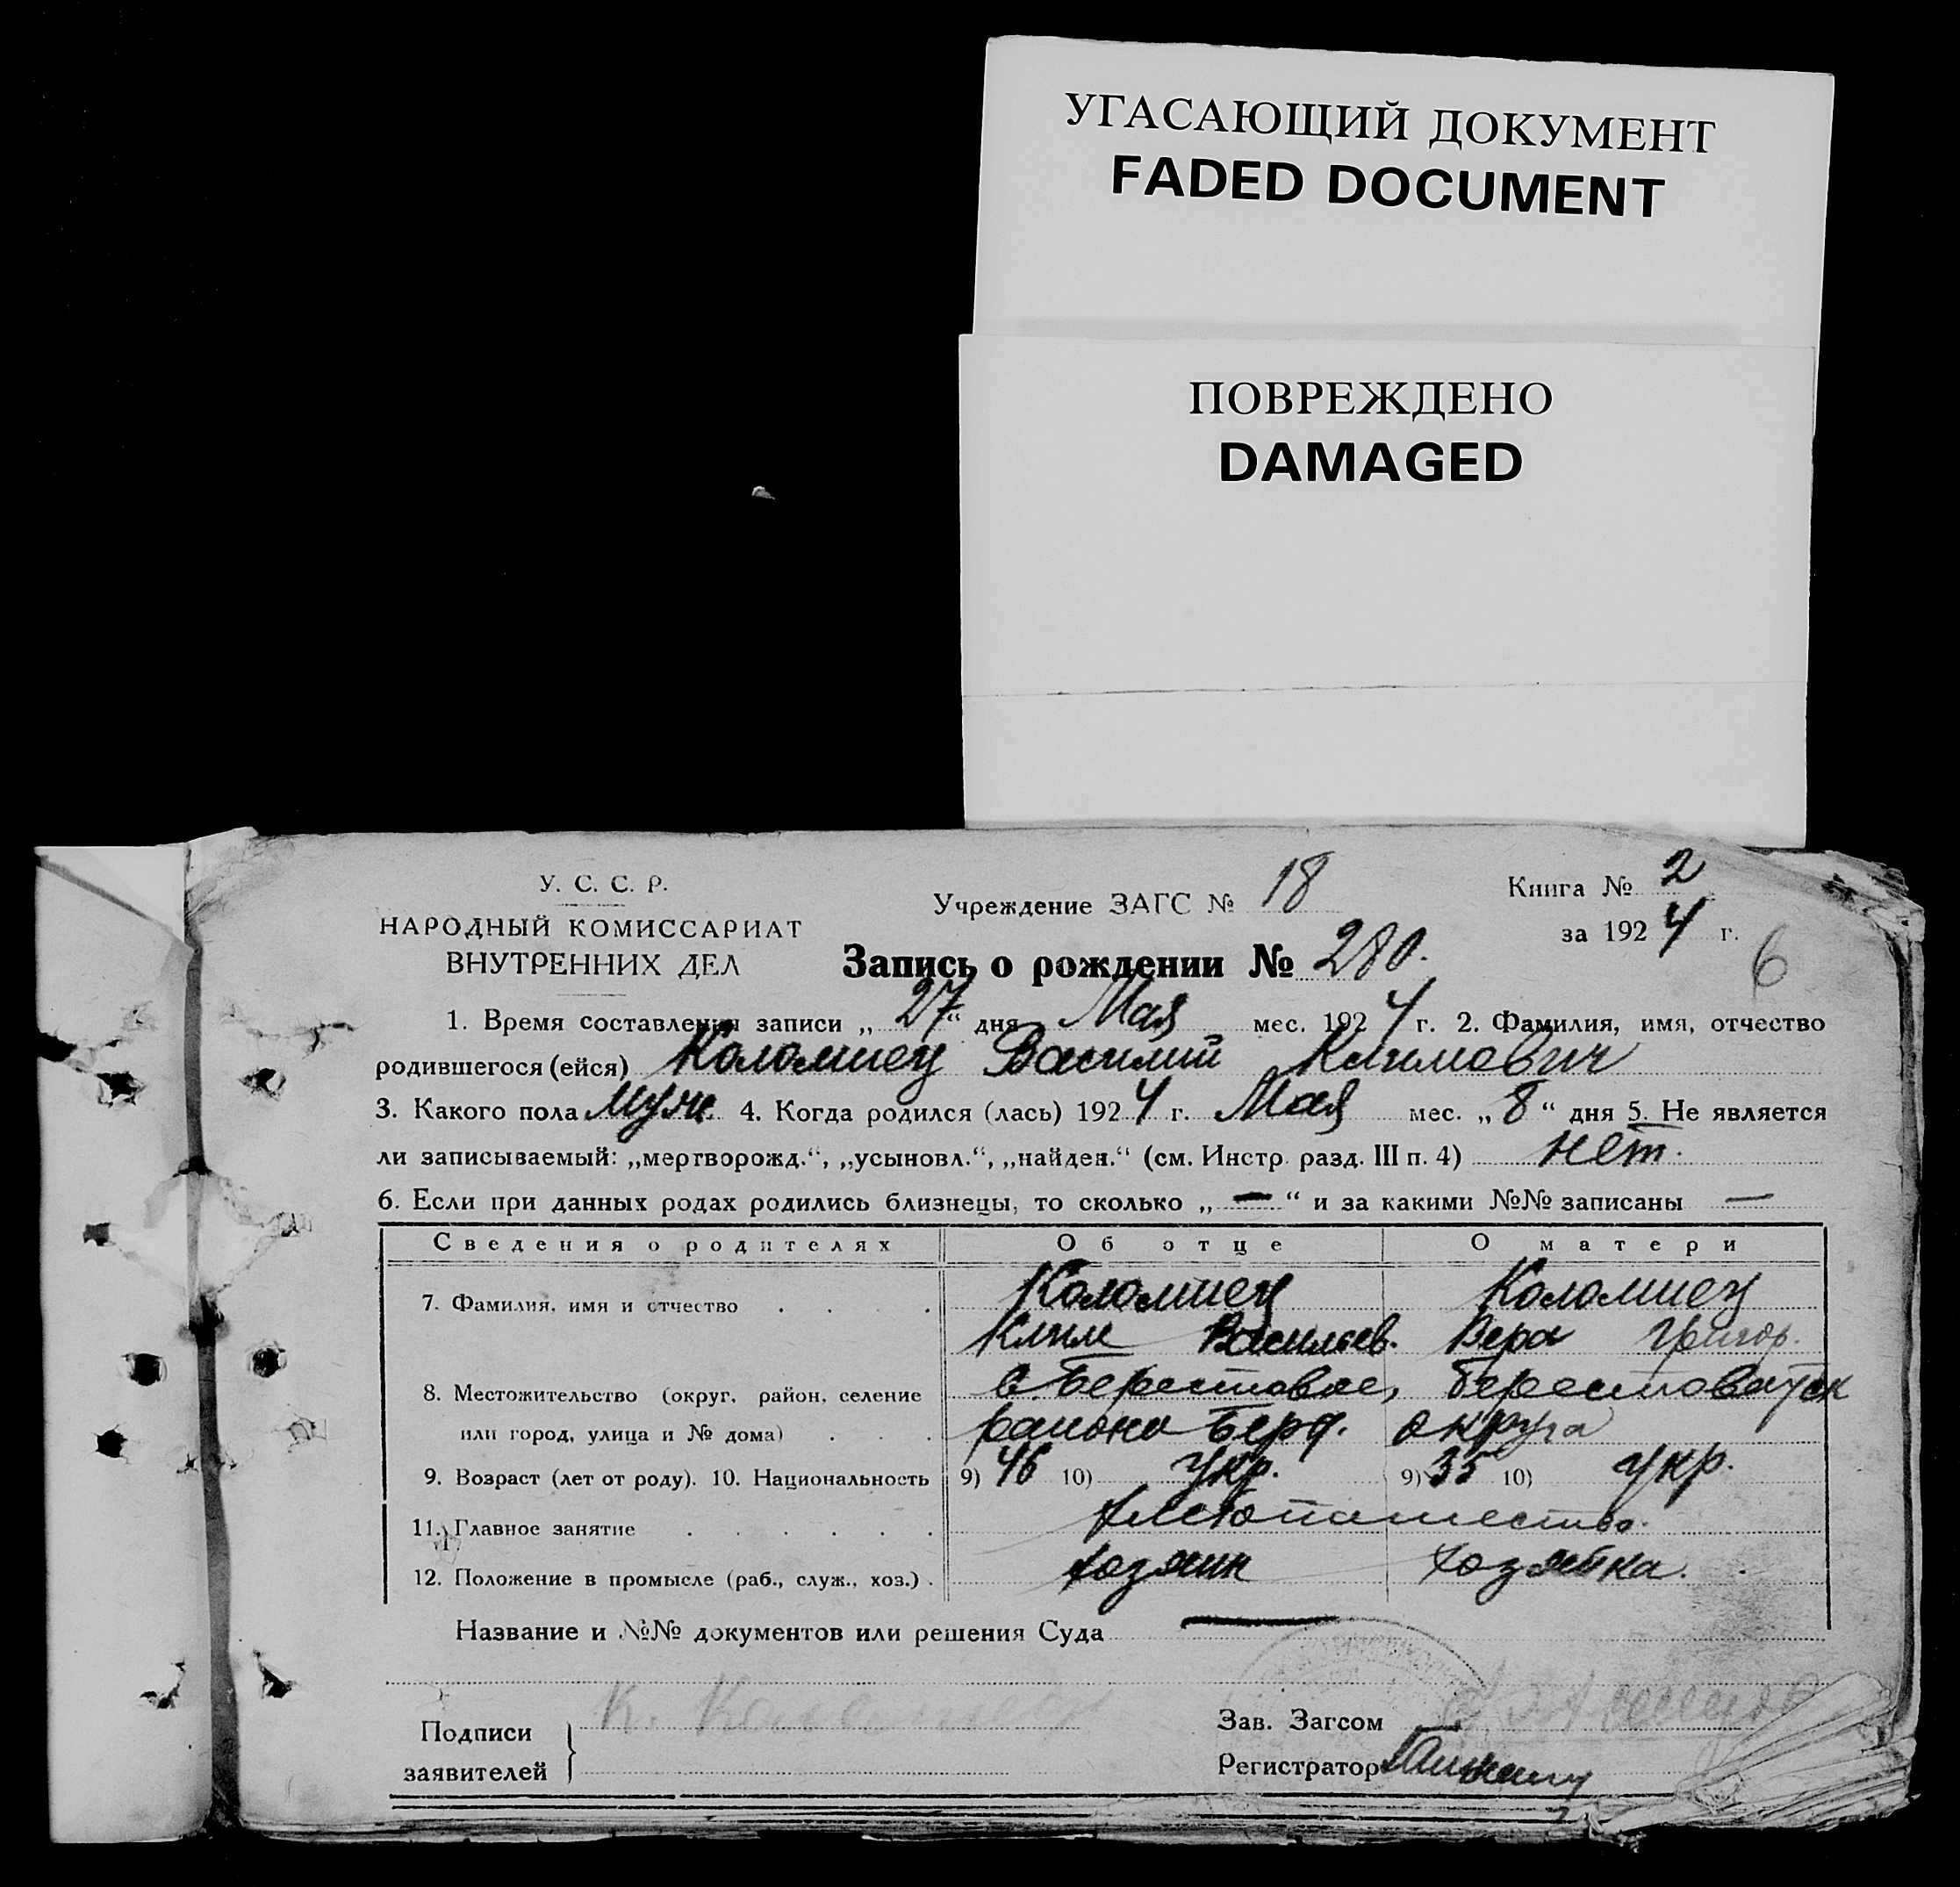 УГАСАЮЩИЙ ДОКУМЕНТ
FADED DOCUMENT
ПОВРЕЖДЕНО
DAMAGED
У. С. С. Р.
НАРОДНЫЙ КОМИССАРИАТ
ВНУТРЕННИХ ДЕЛ
Учреждение ЗАГС № 18
Книга № 2
за 1924 г.
6
Запись о рождении № 280.
1. Время составления записи „27“ дня Мая мес. 1924 г. 2. Фамилия, имя, отчество
родившегося (ейся) Коломиец Василий Климович
3. Какого пола муж. 4. Когда родился (лась) 1924 г. Мая мес. „8“ дня 5. Не является
ли записываемый: „мертворожд.“, „усыновл.“, „найден.“ (см. Инстр. разд. III п. 4) нет.
6. Если при данных родах родились близнецы, то сколько „—“ и за какими №№ записаны —
Сведения о родителях Об отце О матери
7. Фамилия, имя и отчество . . . . Коломиец Коломиец
Клим Васильев. Вера Григор.
8. Местожительство (округ, район, селение с. Берестовое, Берестоватск
или город, улица и № дома) . . . района Берд. округа
9. Возраст (лет от роду). 10. Национальность 9) 46 10) Укр. 9) 35 10) Укр.
11. Главное занятие . . . . . . хлебопашество.
12. Положение в промысле (раб., служ., хоз.) . хозяин хозяйка.
Название и №№ документов или решения Суда —
К. Коломиец
Подписи
заявителей
Зав. Загсом
Регистратор